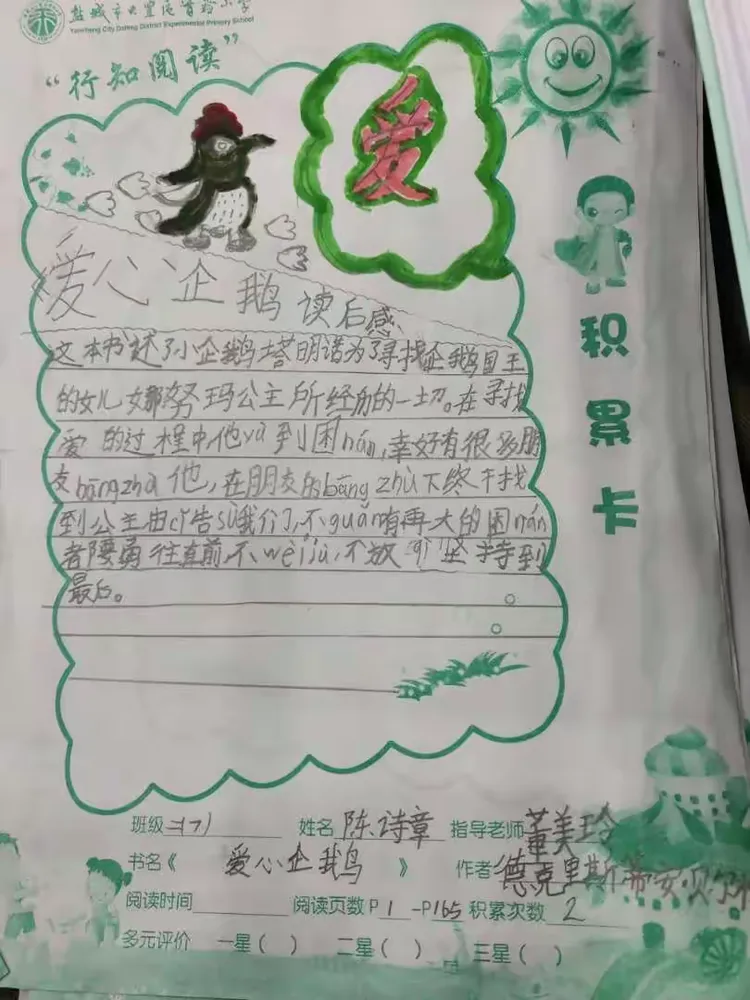 盐城市大丰区实验小学
Yancheng City Dafeng District Experimental Primary School
“行知阅读”
爱
爱心企鹅读后感
这本书述了小企鹅塔明诺为了寻找企鹅国王
的女儿娜努玛公主所经历的一切。在寻找
爱的过程中,他yù到困nán,幸好有很多朋
友bāngzhù他,在朋友的bāng zhù下终于找
到公主由cǐ告sù我们,不guǎn有再大的困nán
者阝要勇往直前,不wèijù,不放 坚持到
最后。
积累卡
班级 姓名 陈诗章 指导老师 董美玲
书名《 爱心企鹅 》 作者 德克里斯蒂安贝尔
阅读时间 阅读页数P1-P165 积累次数 2
多元评价 一星( ) 二星( ) 三星( )